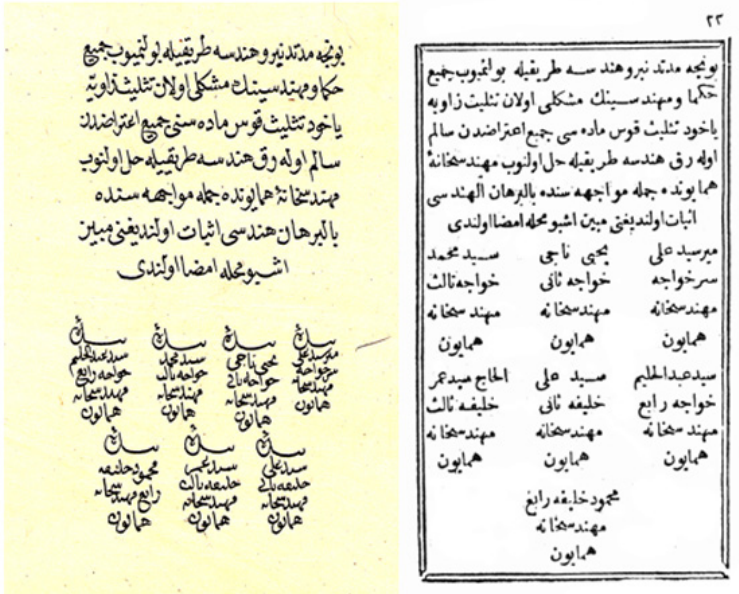 بونجه مدتدنبرو هندسه طریقیله بولنمیوب جمیع
حکما و مهندسینك مشکلی اولان تثلیث زاویه
یاخود تثلیث قوس ماده سنی جمیع اعتراضدن
سالم اوله رق هندسه طریقیله حل اولنوب
مهندسخانۀ همایونده جمله مواجهه سنده
بالبرهان هندسی اثبات اولندیغنی مبین
اشبو محله امضا اولندی
میر سید علی
سر خواجه
مهندسخانه
همایون
یحیی ناجی
خواجه ثانی
مهندسخانه
همایون
سید محمد
خواجه ثالث
مهندسخانه
همایون
سید عبدالحلیم
خواجه رابع
مهندسخانه
همایون
سید علی
خلیفه ثانی
مهندسخانه
همایون
سید عمر
خلیفه ثالث
مهندسخانه
همایون
محمود خلیفه
رابع مهندسخانه
همایون
٢٣
بونجه مدتدنبرو هندسه طریقیله بولنمیوب جمیع
حکما و مهندسینك مشکلی اولان تثلیث زاویه
یاخود تثلیث قوس ماده سی جمیع اعتراضدن سالم
اوله رق هندسه طریقیله حل اولنوب مهندسخانۀ
همایونده جمله مواجهه سنده بالبرهان الهندسی
اثبات اولندیغنی مبین اشبو محله امضا اولندی
میر سید علی یحیی ناجی سید محمد
سر خواجه خواجه ثانی خواجه ثالث
مهندسخانه مهندسخانه مهندسخانه
همایون همایون همایون
سید عبدالحلیم سید علی الحاج سید عمر
خواجه رابع خلیفه ثانی خلیفه ثالث
مهندسخانه مهندسخانه مهندسخانه
همایون همایون همایون
محمود خلیفه رابع
مهندسخانه
همایون